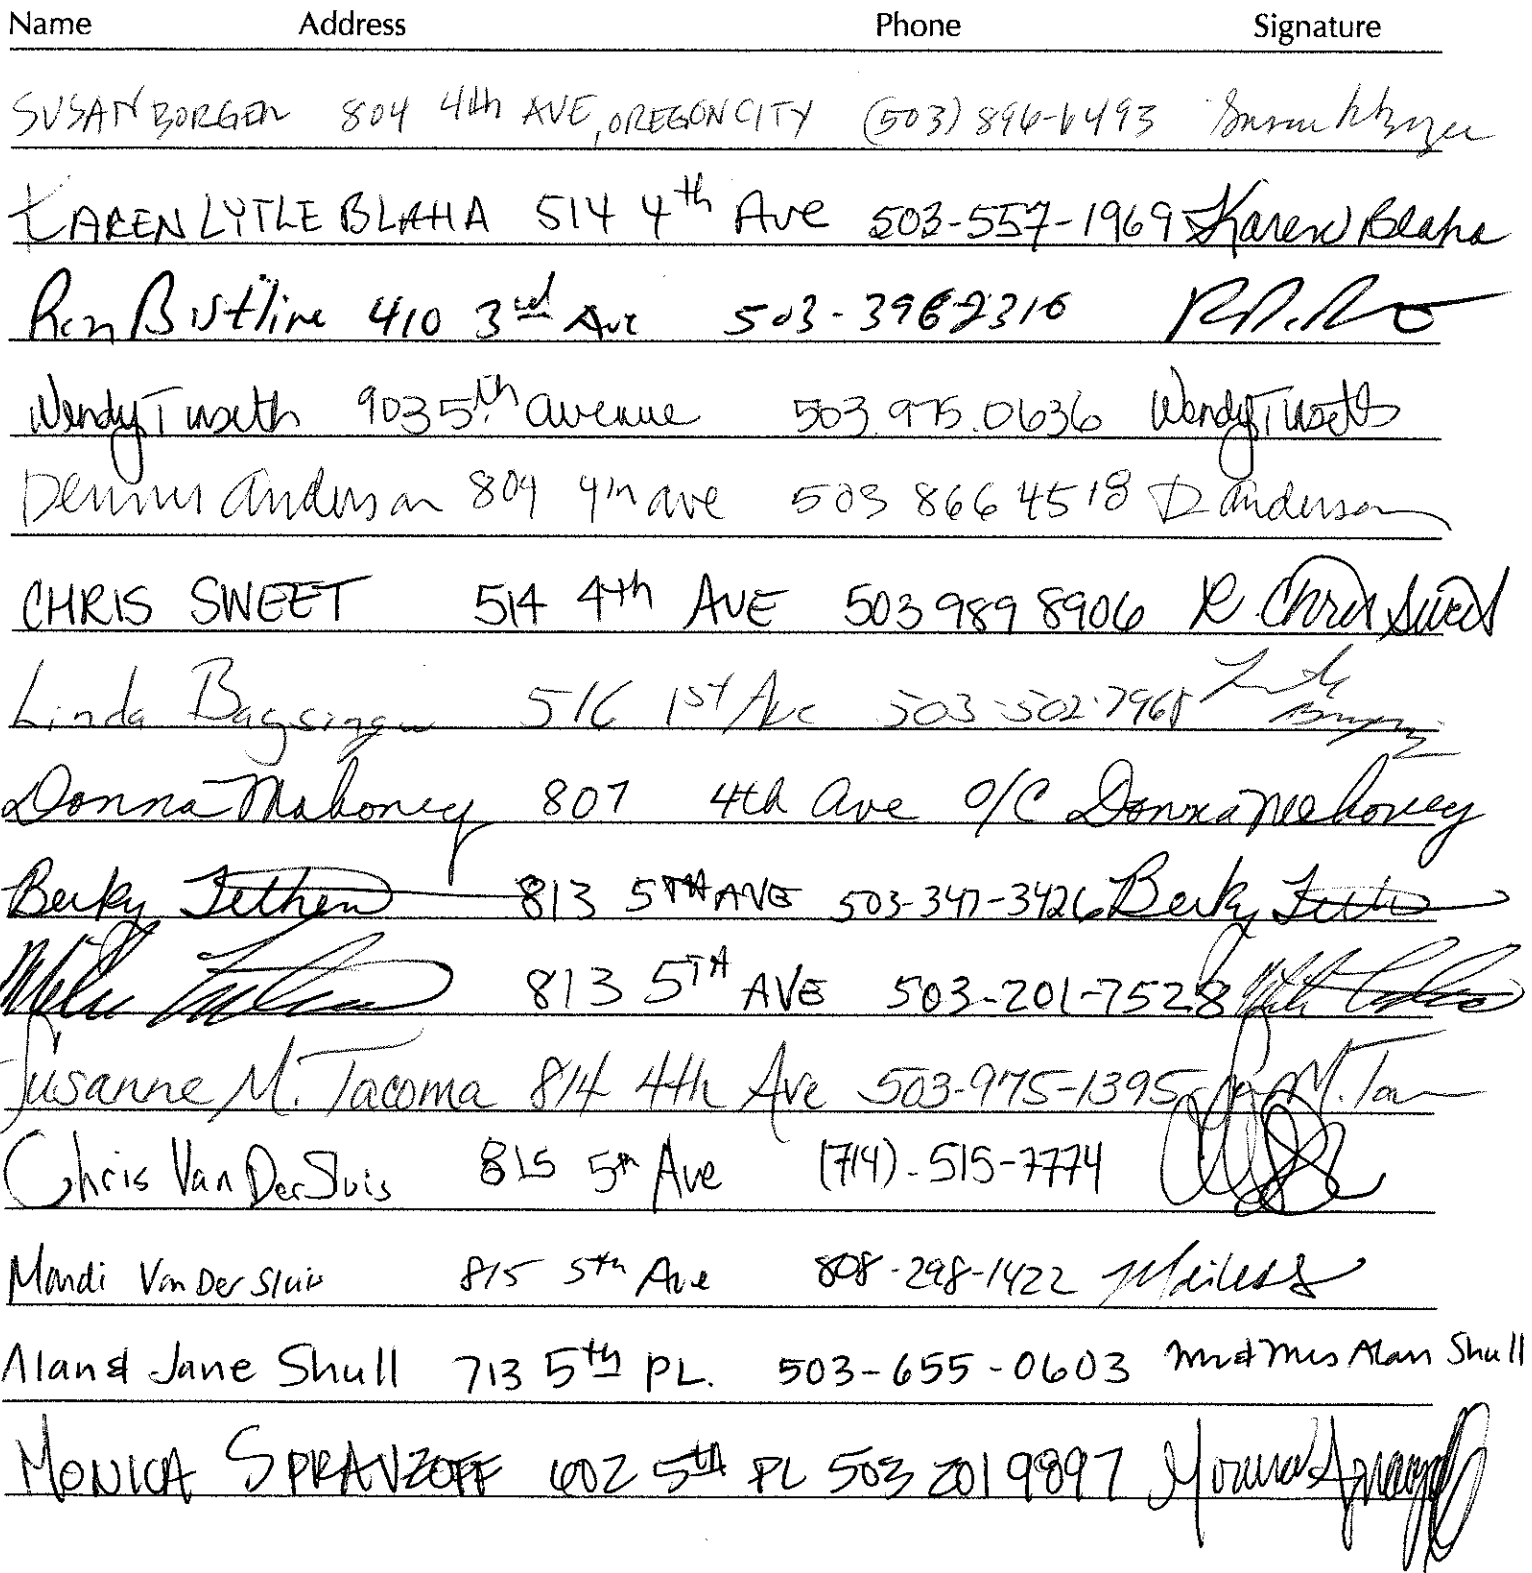 Name Address Phone Signature
SUSAN BORGEN 804 4th AVE, OREGON CITY (503) 896-6493
KAREN LYTLE BLAHA 514 4th Ave 503-557-1969 Karen Blaha
Ron Bistline 410 3rd Ave 503-396-2316
Wendy Tuseth 903 5th avenue 503.975.0636 Wendy Tuseth
Dennis Anderson 809 4th ave 503 866 4518 D Anderson
CHRIS SWEET 514 4th AVE 503 989 8906 R. Chris Sweet
Linda 516 1st Ave 503-502-7968 Linda
Donna Mahoney 807 4th Ave O/C Donna Mahoney
Becky 813 5TH AVE 503-347-3426 Becky
Mike 813 5TH AVE 503-201-7528 Mike
Susanne M. Tacoma 814 4th Ave 503-975-1395 M.
Chris VanDerSluis 815 5th Ave (714)-515-7774
Mandi VanDerSluis 815 5th Ave 808-298-1422
Alan & Jane Shull 713 5th PL. 503-655-0603 Mr & Mrs Alan Shull
MONICA SPRAVZOFF 602 5TH PL 503 201 9897